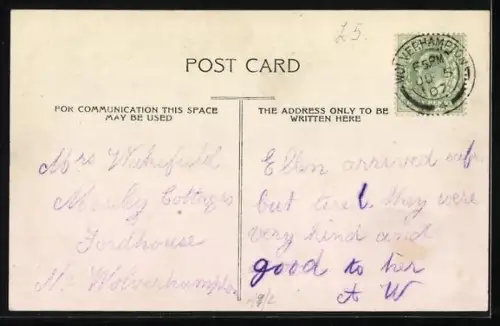 £5.
WOLVERHAMPTON
POST CARD
FOR COMMUNICATION THIS SPACE
MAY BE USED
THE ADDRESS ONLY TO BE
WRITTEN HERE
Mrs Wakefield
Cottages
Fordhouse
Nr. Wolverhampton
Ellen arrived safe
but tired they were
very kind and
good to her
A W